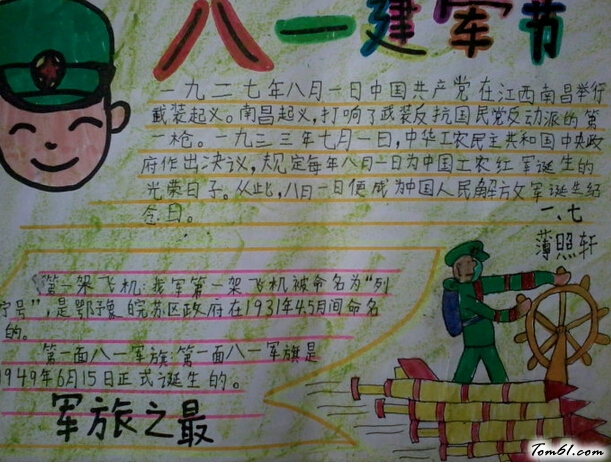 八一建军节
一九二七年八月一日中国共产党在江西南昌举行
武装起义。南昌起义,打响了武装反抗国民党反动派的第
一枪。一九三三年七月一日,中华工农民主共和国中央政
府作出决议,规定每年八月一日为中国工农红军诞生的
光荣日子。从此,八月一日便成为中国人民解放军诞生纪
念日。
一、七
薄照轩
第一架飞机:我军第一架飞机被命名为“列
宁号”,是鄂豫皖苏区政府在1931年4.5月间命名
的。
第一面八一军旗:第一面八一军旗是
1949年6月15日正式诞生的。
军旅之最
Tom61.com